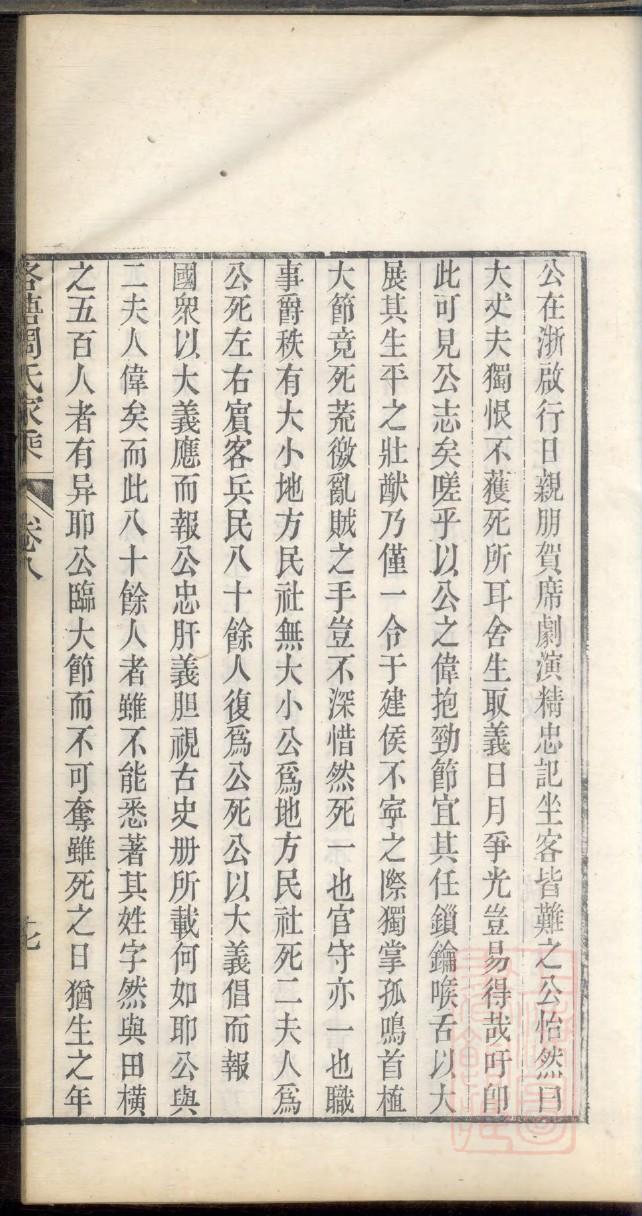 公在浙啟行日親朋賀席劇演精忠記坐客皆難之公怡然曰
大丈夫獨恨不獲死所耳舍生取義日月爭光豈易得哉吁卽
此可見公志矣嗟乎以公之偉抱勁節宜其任鎖鑰喉舌以大
展其生平之壯猷乃僅一令于建侯不寧之際獨掌孤鳴首植
大節竟死荒徼亂賊之手豈不深惜然死一也官守亦一也職
事爵秩有大小地方民社無大小公爲地方民社死二夫人爲
公死左右賓客兵民八十餘人復爲公死公以大義倡而報
國衆以大義應而報公忠肝義胆視古史册所載何如耶公與
二夫人偉矣而此八十餘人者雖不能悉著其姓字然與田橫
之五百人者有异耶公臨大節而不可奪雖死之日猶生之年
周氏家乘 卷八